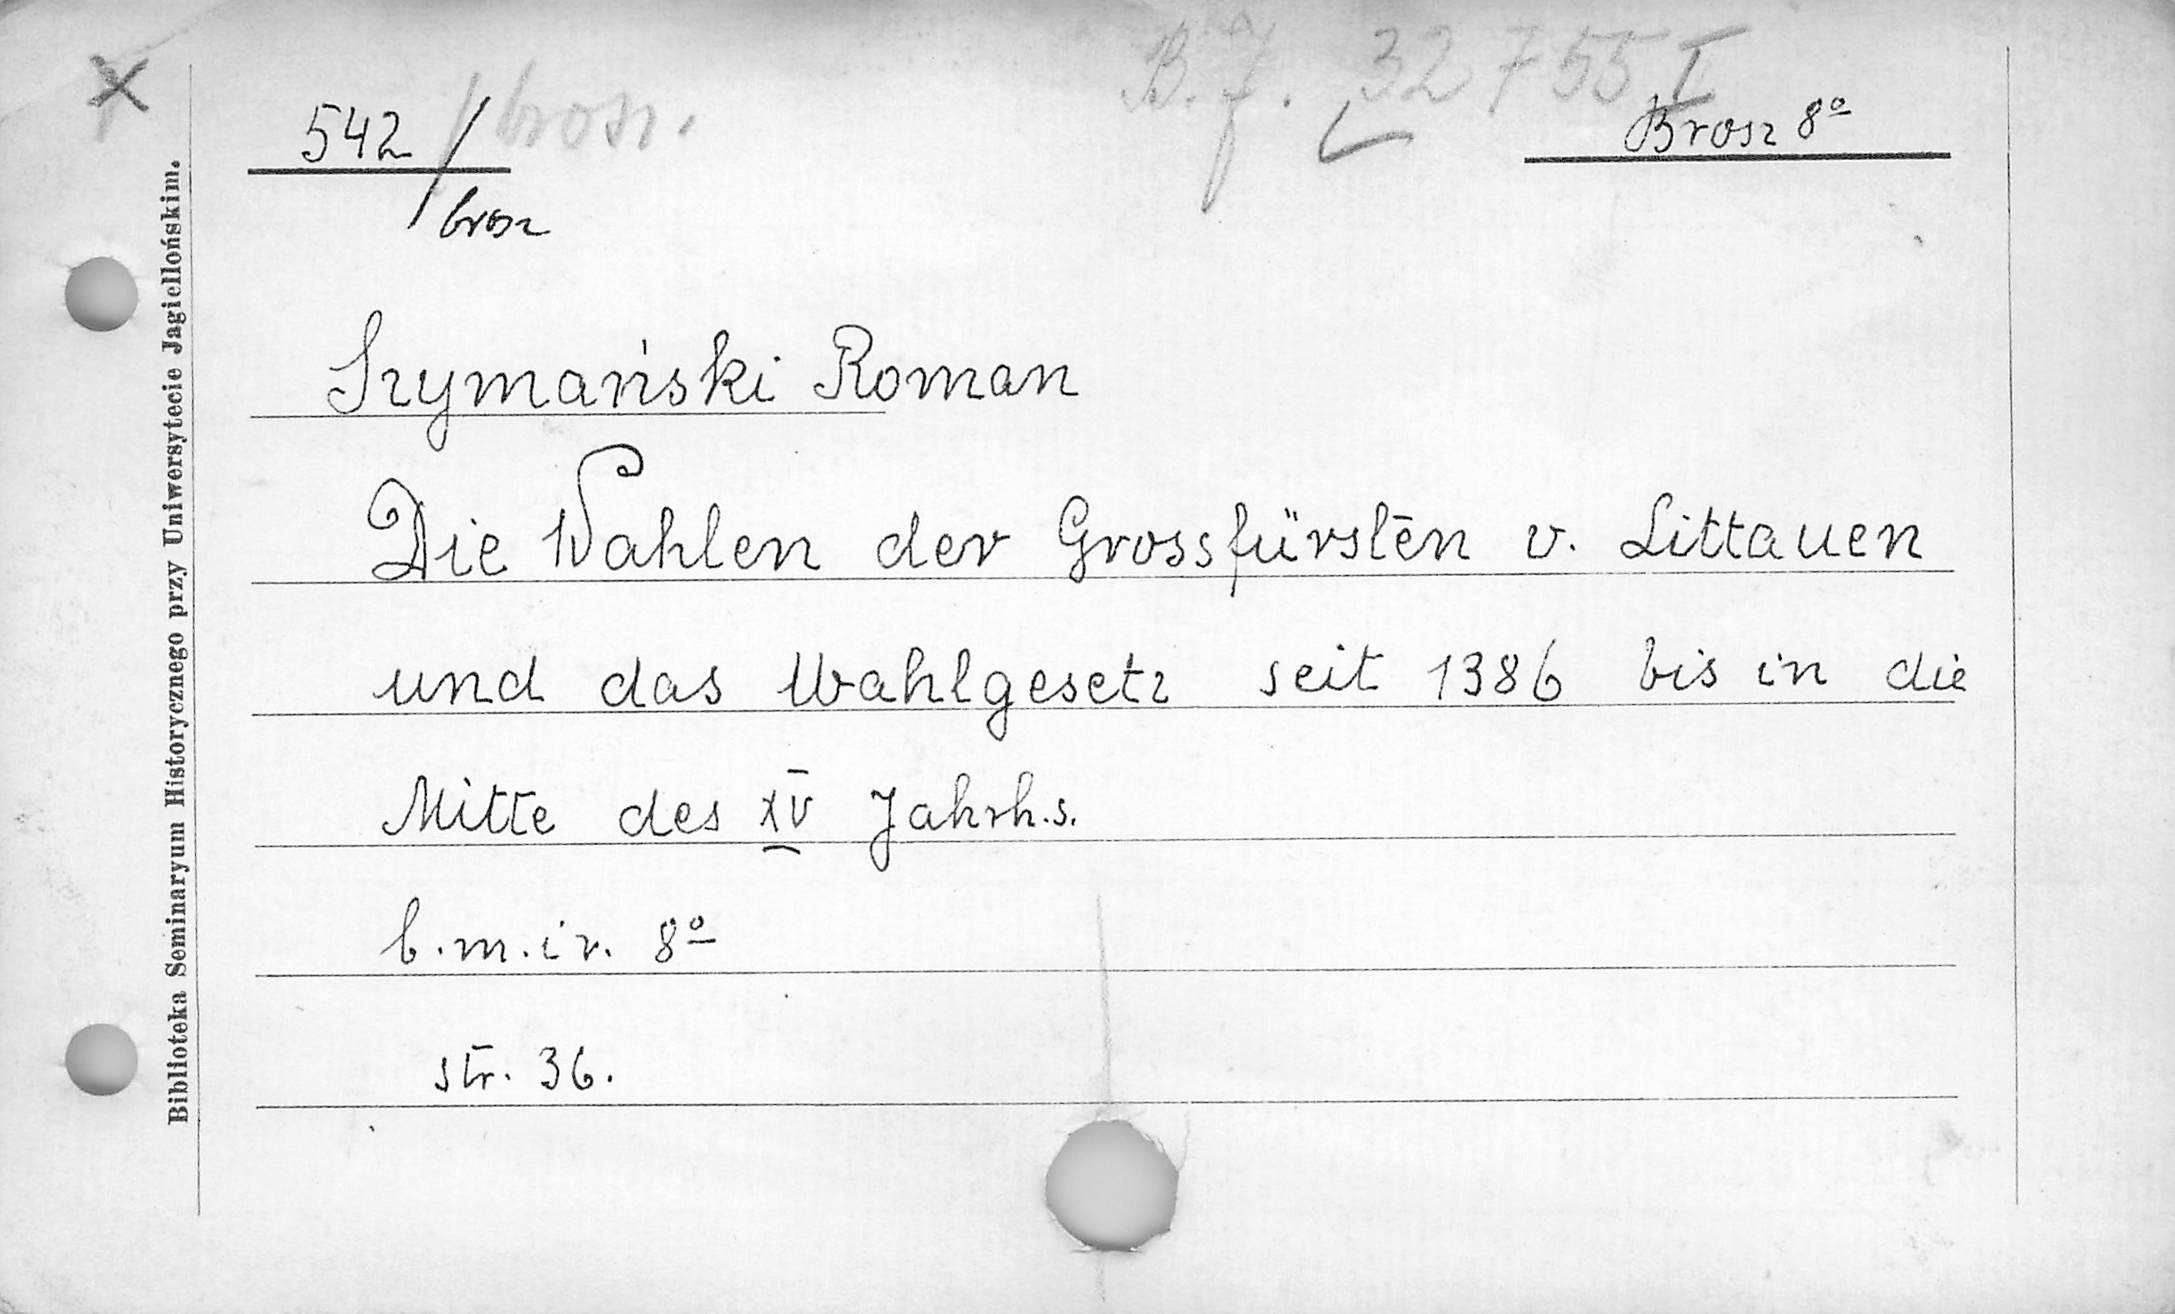 B. J. 32755 I
542 / brosz.
brosz
Brosz 8º
Szymański Roman
Die Wahlen der Grossfürsten v. Littauen
und das Wahlgesetz seit 1386 bis in die
Mitte des XV Jahrh.s.
b. m. i r. 8º
str. 36.
Biblioteka Seminaryum Historycznego przy Uniwersytecie Jagiellońskim.